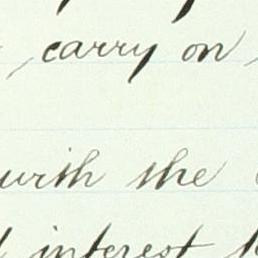 carry on
with the
interest